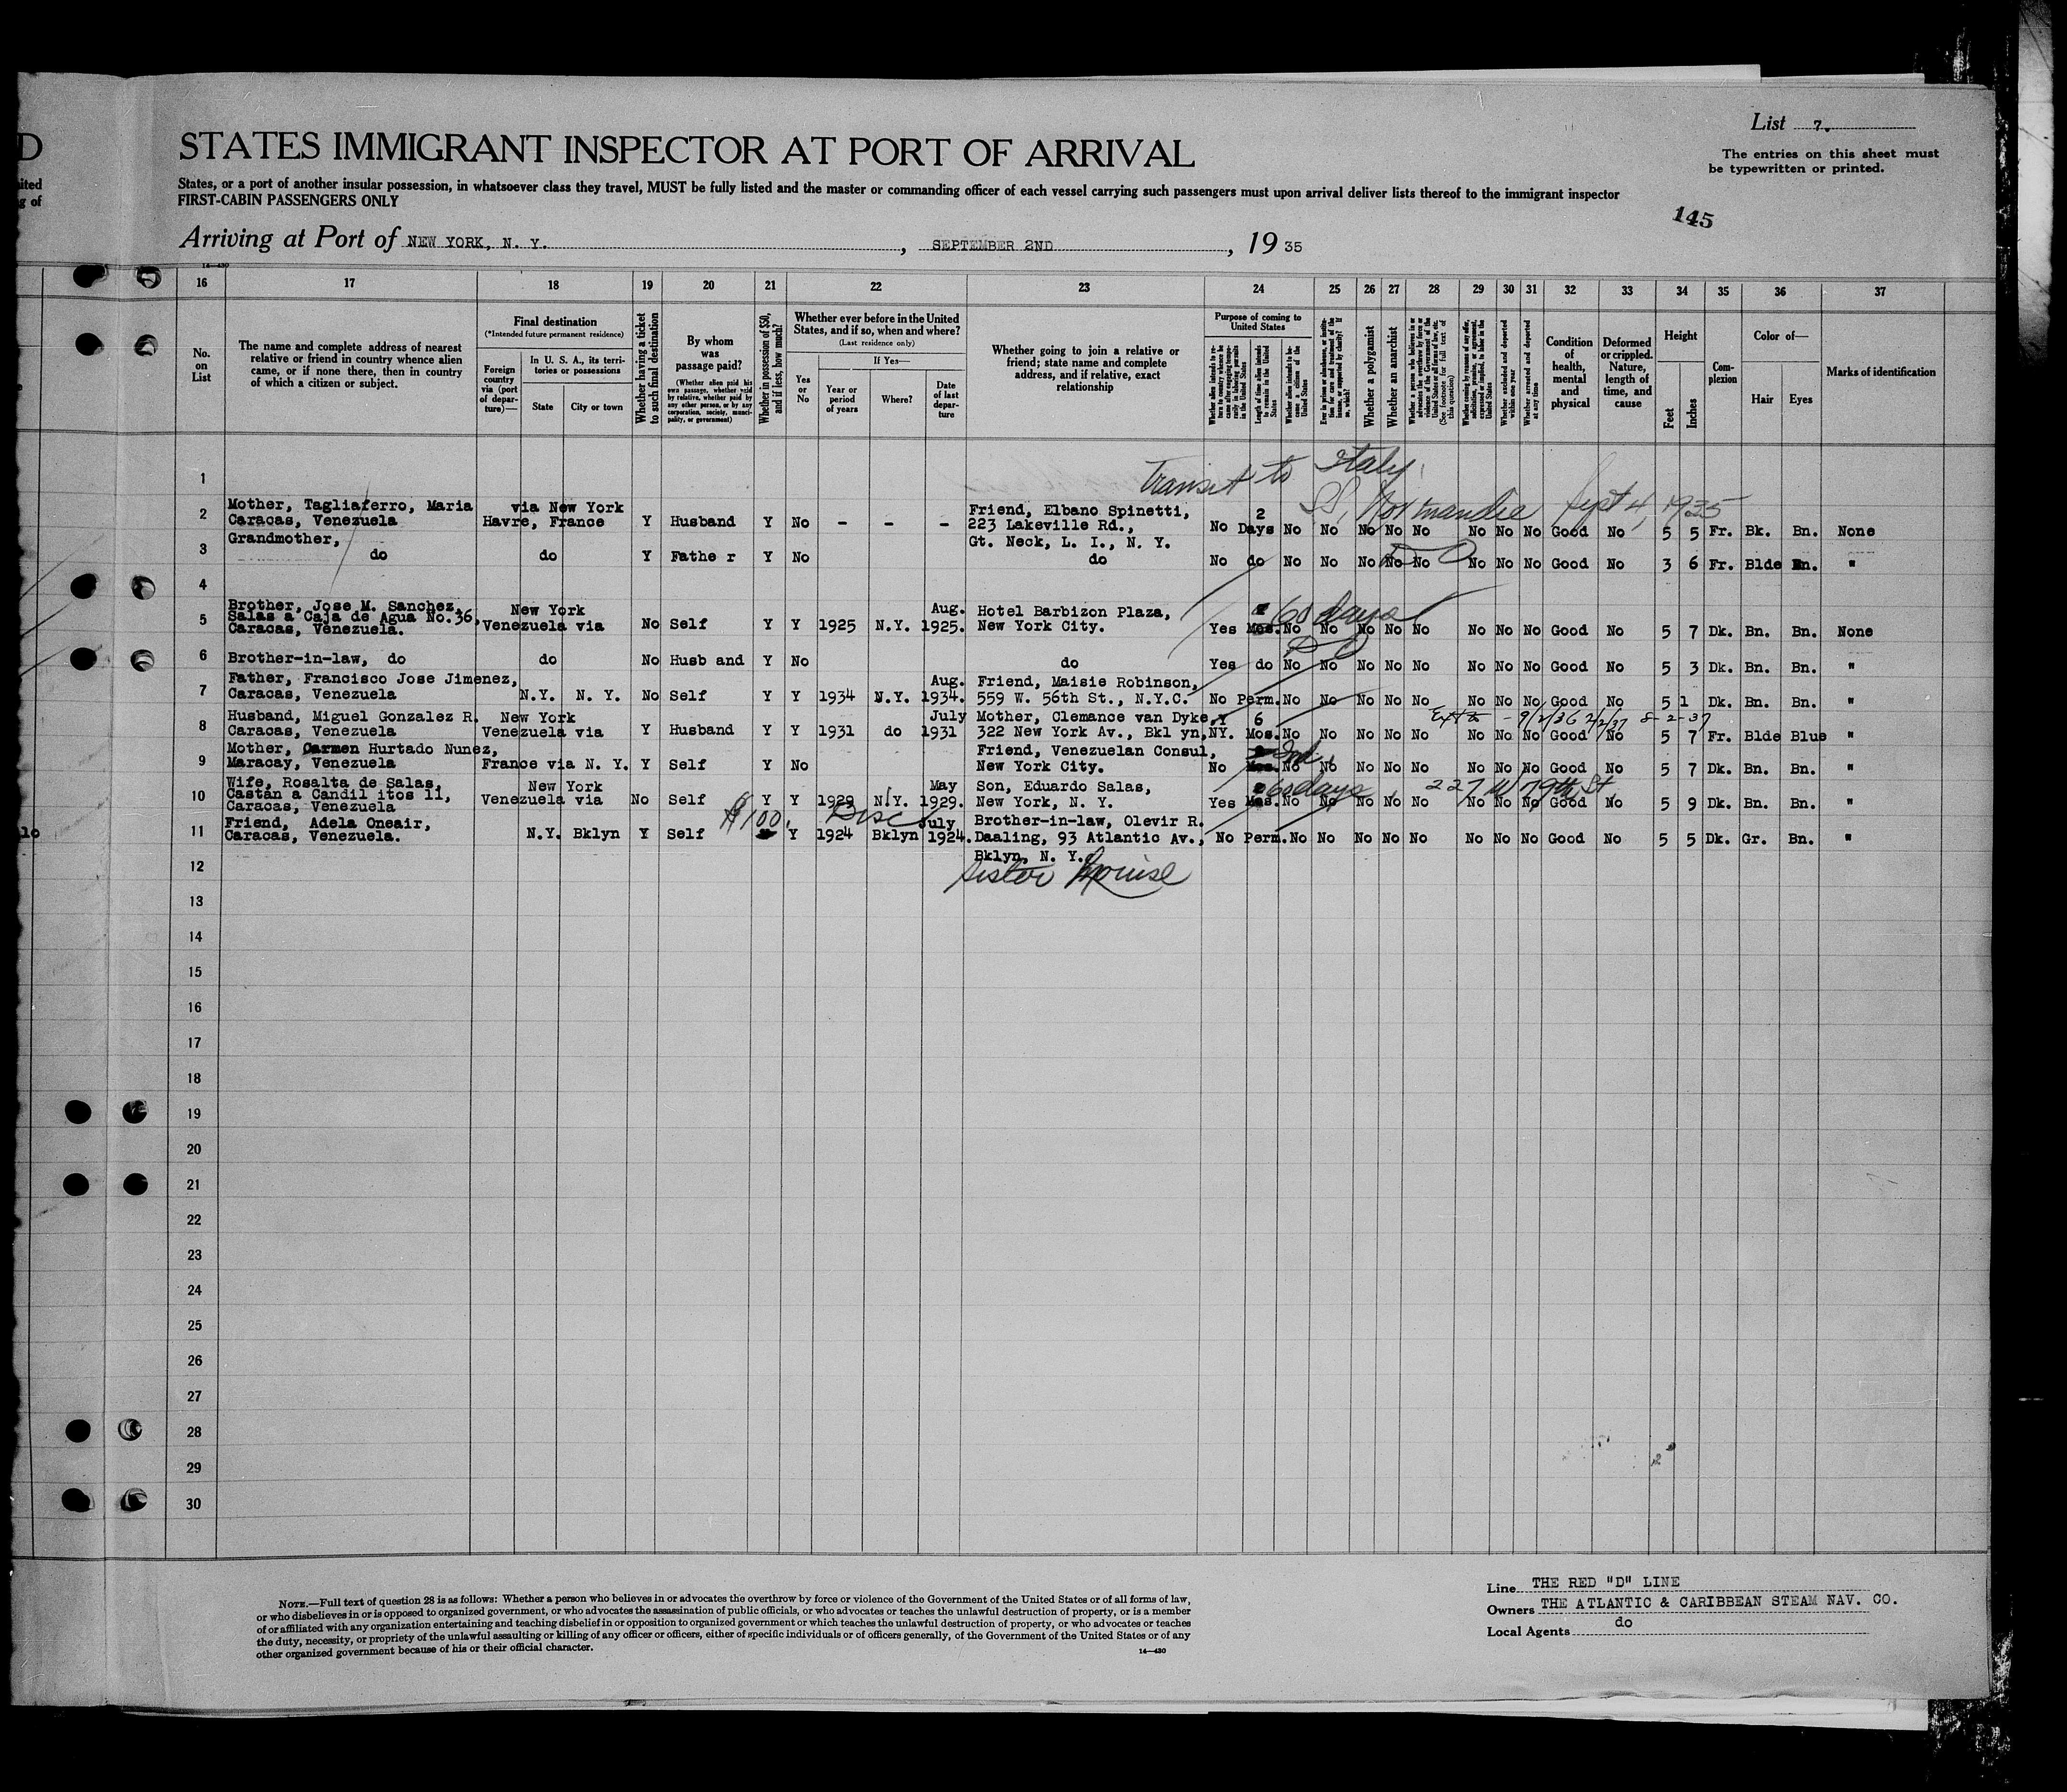 List 7.
The entries on this sheet must
be typewritten or printed.
D
STATES IMMIGRANT INSPECTOR AT PORT OF ARRIVAL
ited
g of
States, or a port of another insular possession, in whatsoever class they travel, MUST be fully listed and the master or commanding officer of each vessel carrying such passengers must upon arrival deliver lists thereof to the immigrant inspector
FIRST-CABIN PASSENGERS ONLY
145
Arriving at Port of NEW YORK, N. Y. , SEPTEMBER 2ND , 19 35
14—430
16 17 18 19 20 21 22 23 24 25 26 27 28 29 30 31 32 33 34 35 36 37
No. on List
The name and complete address of nearest relative or friend in country whence alien came, or if none there, then in country of which a citizen or subject.
Final destination
(*Intended future permanent residence)
Foreign country via (port of departure)—
In U. S. A., its territories or possessions
State City or town
Whether having a ticket to such final destination
By whom was passage paid?
(Whether alien paid his own passage, whether paid by relative, whether paid by any other person, or by any corporation, society, municipality, or government)
Whether in possession of $50, and if less, how much?
Whether ever before in the United States, and if so, when and where?
(Last residence only)
Yes or No
If Yes—
Year or period of years Where? Date of last departure
Whether going to join a relative or friend; state name and complete address, and if relative, exact relationship
Purpose of coming to United States
Length of time alien intends to remain in the United States
Whether alien intends to become a citizen of the United States
Whether a polygamist
Whether an anarchist
Whether excluded and deported within one year
Whether arrested and deported at any time
Condition of health, mental and physical
Deformed or crippled. Nature, length of time, and cause
Height
Feet Inches
Complexion
Color of—
Hair Eyes
Marks of identification
1
Transit to Italy
SS. Normandie Sept 4, 1935
2 Mother, Tagliaferro, Maria via New York Friend, Elbano Spinetti,
Caracas, Venezuela Havre, France Y Husband Y No - - - 223 Lakeville Rd., 2
Gt. Neck, L. I., N. Y. No Days No No No No No No No No Good No 5 5 Fr. Bk. Bn. None
3 Grandmother,
do do Y Fathe r Y No do No do No No No No No No No No Good No 3 6 Fr. Blde Bn. "
4
5 Brother, Jose M. Sanchez, New York Aug. Hotel Barbizon Plaza, 60 days
Salas a Caja de Agua No. 36,
Caracas, Venezuela. Venezuela via No Self Y Y 1925 N.Y. 1925. New York City. Yes Mos. No No No No No No No No Good No 5 7 Dk. Bn. Bn. None
6 Brother-in-law, do do No Husb and Y No do Yes do No No No No No No No No Good No 5 3 Dk. Bn. Bn. "
7 Father, Francisco Jose Jimenez, Aug. Friend, Maisie Robinson,
Caracas, Venezuela N.Y. N. Y. No Self Y Y 1934 N.Y. 1934. 559 W. 56th St., N.Y.C. No Perm. No No No No No No No No Good No 5 1 Dk. Bn. Bn. "
8 Husband, Miguel Gonzalez R. New York July Mother, Clemance van Dyke, Y 6 9/2/36 2/2/37 8-2-37
Caracas, Venezuela Venezuela via Y Husband Y Y 1931 do 1931 322 New York Av., Bkl yn, NY. Mos. No No No No No No No No Good No 5 7 Fr. Blde Blue "
9 Mother, Carmen Hurtado Nunez, Friend, Venezuelan Consul,
Maracay, Venezuela France via N. Y. Y Self Y No New York City. No Mos. No No No No No No No No Good No 5 7 Dk. Bn. Bn. "
10 Wife, Rosalta de Salas, New York May Son, Eduardo Salas, 60 days, 227 W 79th St
Castan a Candil itos 11,
Caracas, Venezuela Venezuela via No Self Y Y 1929 N.Y. 1929. New York, N. Y. Yes Mos. No No No No No No No No Good No 5 9 Dk. Bn. Bn. "
$100. Disc
11 Friend, Adela Oneair, July Brother-in-law, Olevir R.
Caracas, Venezuela. N.Y. Bklyn Y Self Y 1924 Bklyn 1924. Daaling, 93 Atlantic Av., No Perm. No No No No No No No No Good No 5 5 Dk. Gr. Bn. "
Bklyn, N. Y.
12 sister Louise
13
14
15
16
17
18
19
20
21
22
23
24
25
26
27
28
29
30
NOTE.—Full text of question 28 is as follows: Whether a person who believes in or advocates the overthrow by force or violence of the Government of the United States or of all forms of law,
or who disbelieves in or is opposed to organized government, or who advocates the assassination of public officials, or who advocates or teaches the unlawful destruction of property, or is a member
of or affiliated with any organization entertaining and teaching disbelief in or opposition to organized government or which teaches the unlawful destruction of property, or who advocates or teaches
the duty, necessity, or propriety of the unlawful assaulting or killing of any officer or officers, either of specific individuals or of officers generally, of the Government of the United States or of any
other organized government because of his or their official character.
14—430
Line THE RED "D" LINE
Owners THE ATLANTIC & CARIBBEAN STEAM NAV. CO.
Local Agents do